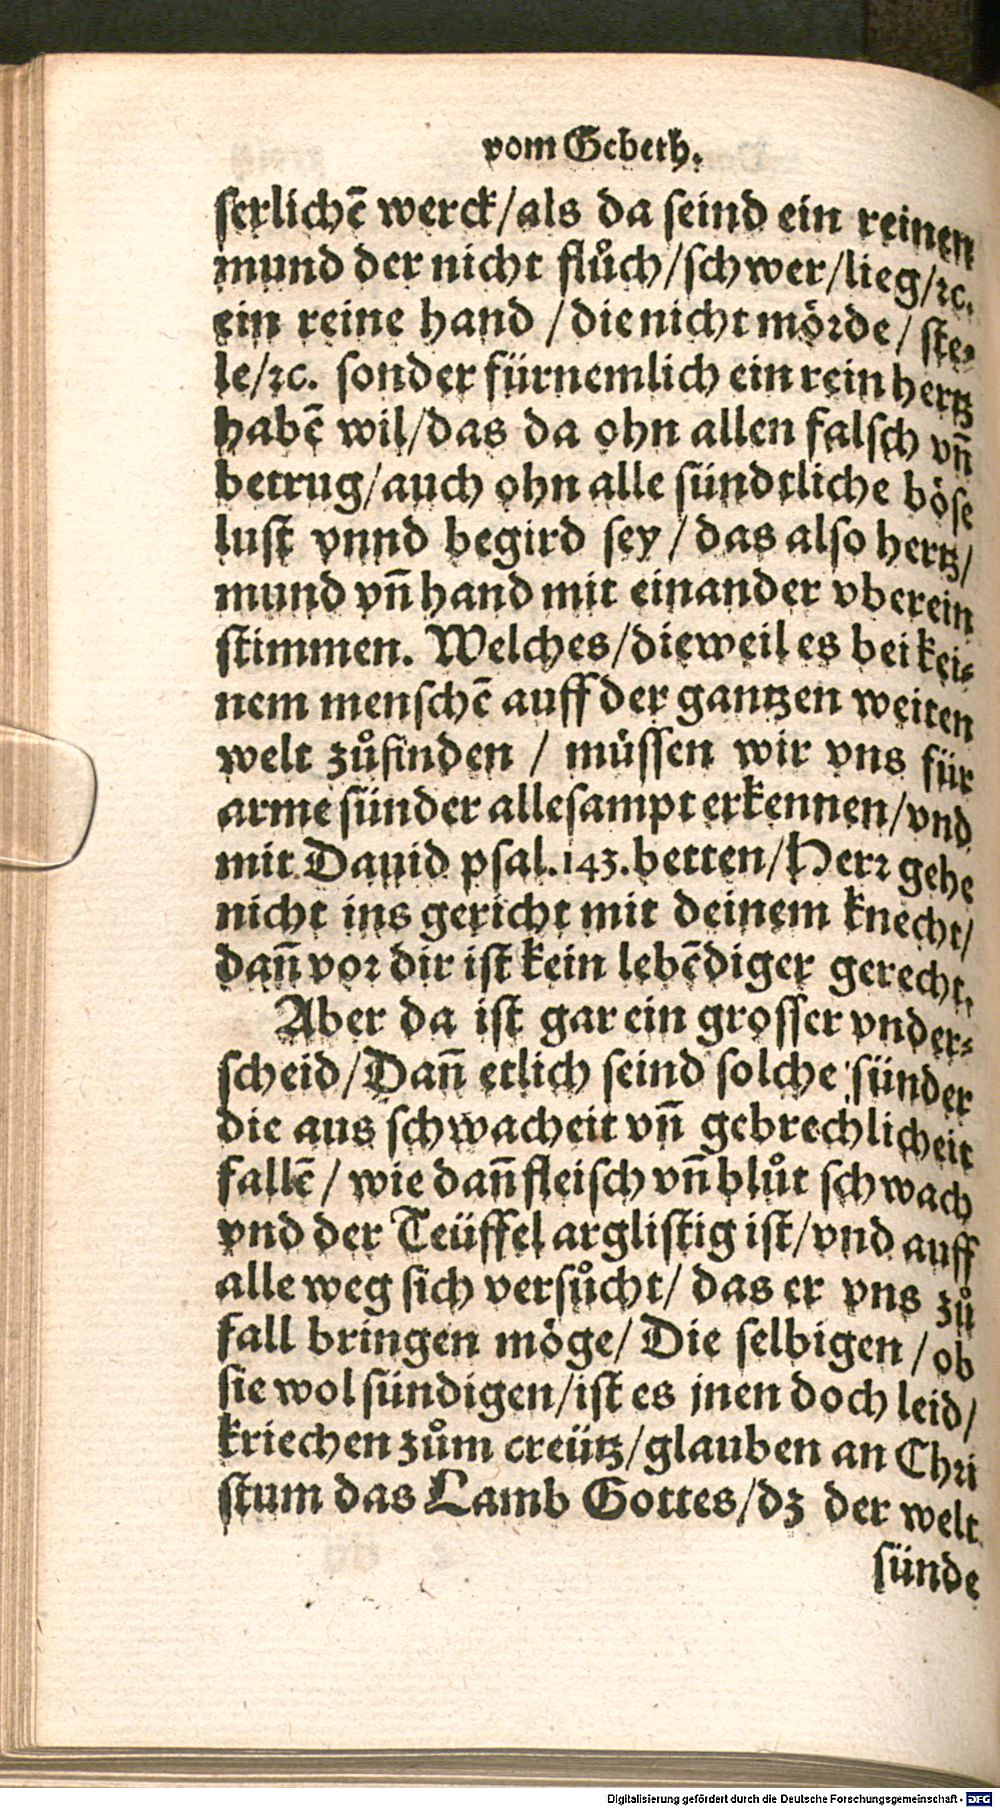 vom Gebeth.
serlichẽ werck/als da seind ein reinen
mund der nicht flůch/schwer/lieg/ꝛc.
ein reine hand /die nicht mörde/ ste⸗
le/ꝛc. sonder fürnemlich ein rein hertz
habẽ wil/das da ohn allen falsch vñ
betrug/auch ohn alle sündtliche böse
lust vnnd begird sey/das also hertz/
mund vñ hand mit einander vberein
stimmen. Welches/dieweil es bei kei⸗
nem menschẽ auff der gantzen weiten
welt zůfinden / müssen wir vns für
arme sünder allesampt erkennen/vnd
mit Dauid psal.143.betten/Herr gehe
nicht ins gericht mit deinem knecht/
dañ vor dir ist kein lebẽdiger gerecht.
Aber da ist gar ein grosser vnder⸗
scheid/Dañ etlich seind solche sünder
die aus schwacheit vñ gebrechlicheit
fallẽ/ wie dañ fleisch vñ blůt schwach
vnd der Teüffel arglistig ist/vnd auff
alle weg sich versůcht/ das er vns zů
fall bringen möge/ Die selbigen/ob
sie wol sündigen/ist es jnen doch leid/
kriechen zům creütz/glauben an Chri
stum das Lamb Gottes/dz der welt
sünde
Digitalisierung gefördert durch die Deutsche Forschungsgemeinschaft - DFG